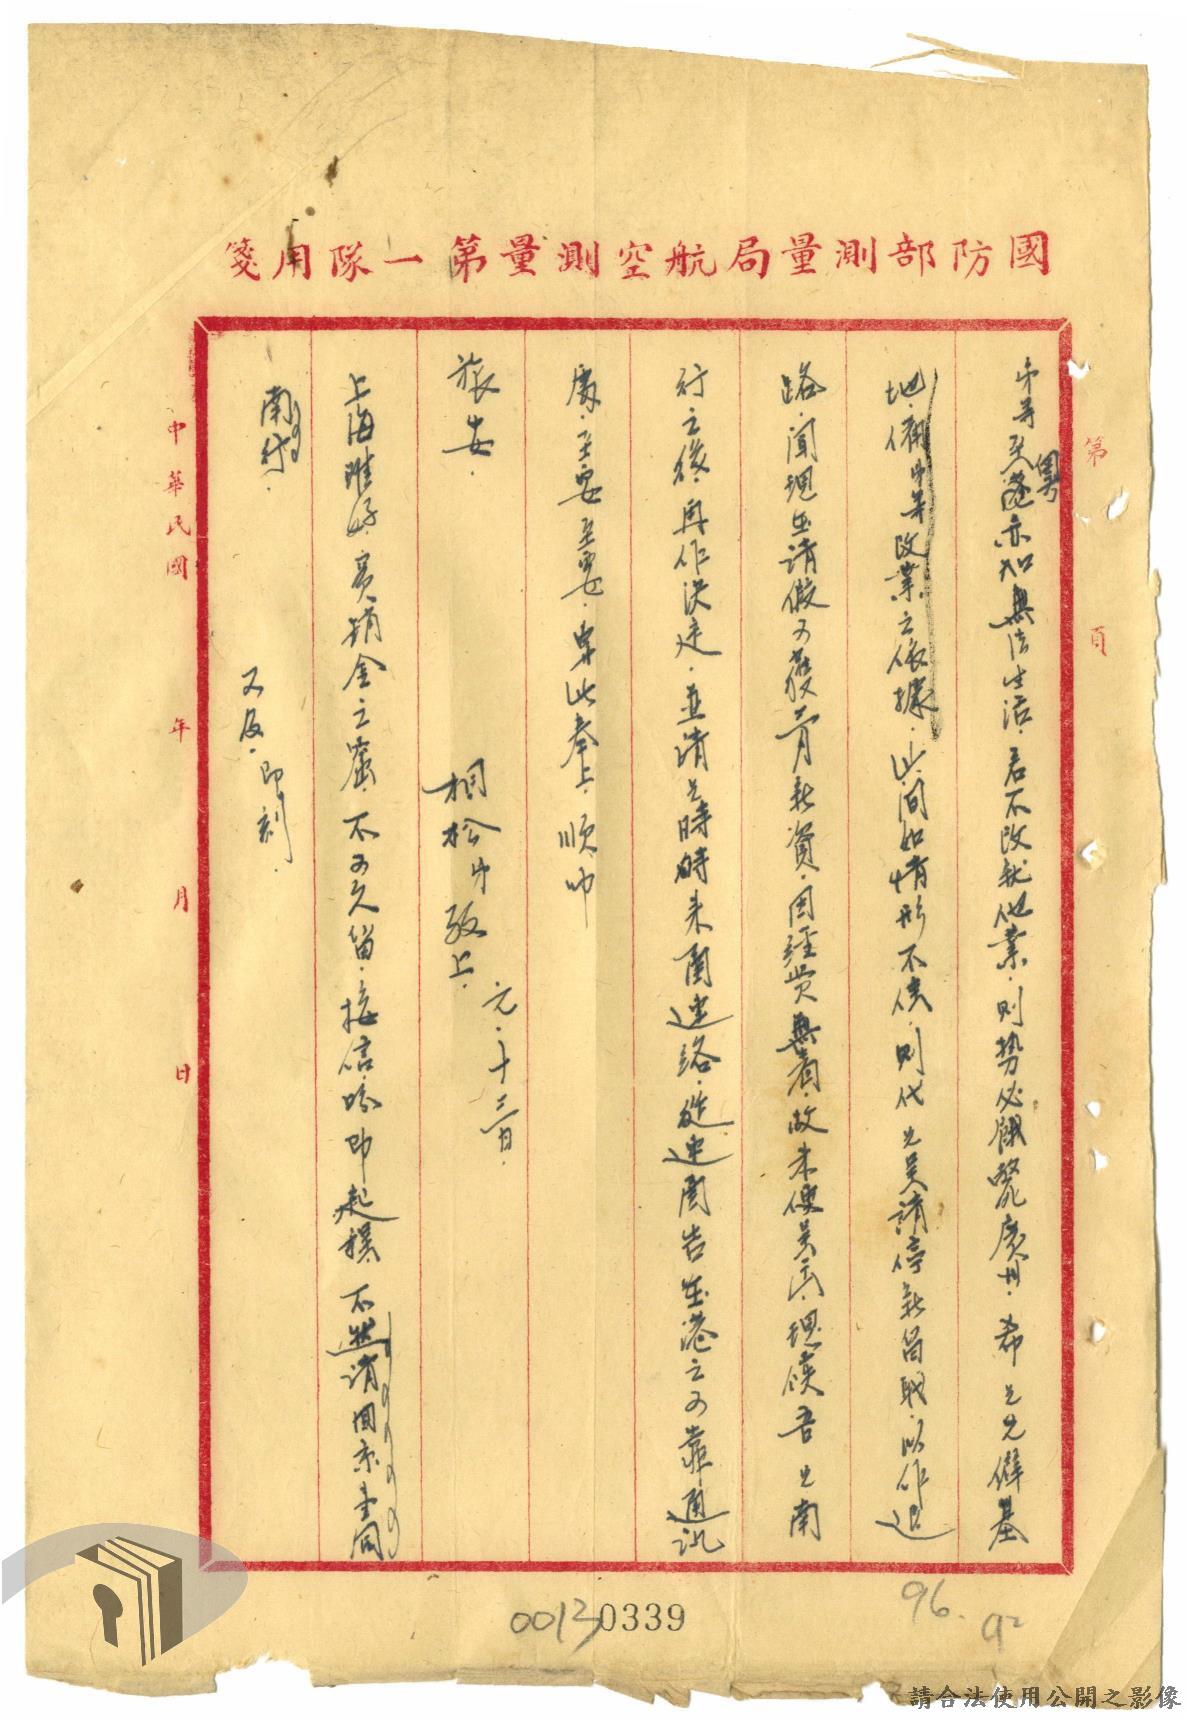 國防部測量局航空測量第一隊用箋
第 頁
弟等至粵後亦知無法生活，若不改就他業，則勢必餓斃廣州，希兄先僻基
地，備弟等改業之依據，此間如情形不佳，則代兄呈請停薪留職，以作退
路，聞現出請假可發二月薪資，因經費無着，故未便呈示，現候吾兄南
行之後再作決定，並請兄時時來函連絡，從速函告在港之可靠通訊
處，至要至要，專此奉上，順叩
旅安。
桐松弟敬上。
元、十二月。
上海雖好，實銷金之窟，不可久留，接信後即起程，不然請回京面同
南行。
又及，即刻
中華民國 年 月 日
00130339
96.
92
請合法使用公開之影像